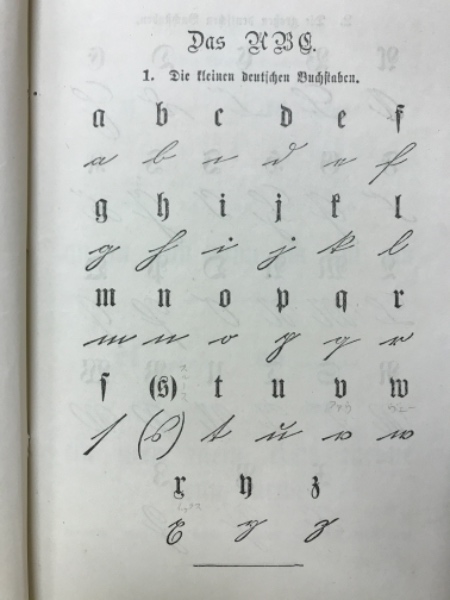 Das ABC.
1. Die kleinen deutschen Buchstaben.
a b c d e f
a b c d e f
g h i j k l
g h i j k l
m n o p q r
m n o p q r
ſ (s) t u v w
ſ (s) t u v w
x y z
x y z